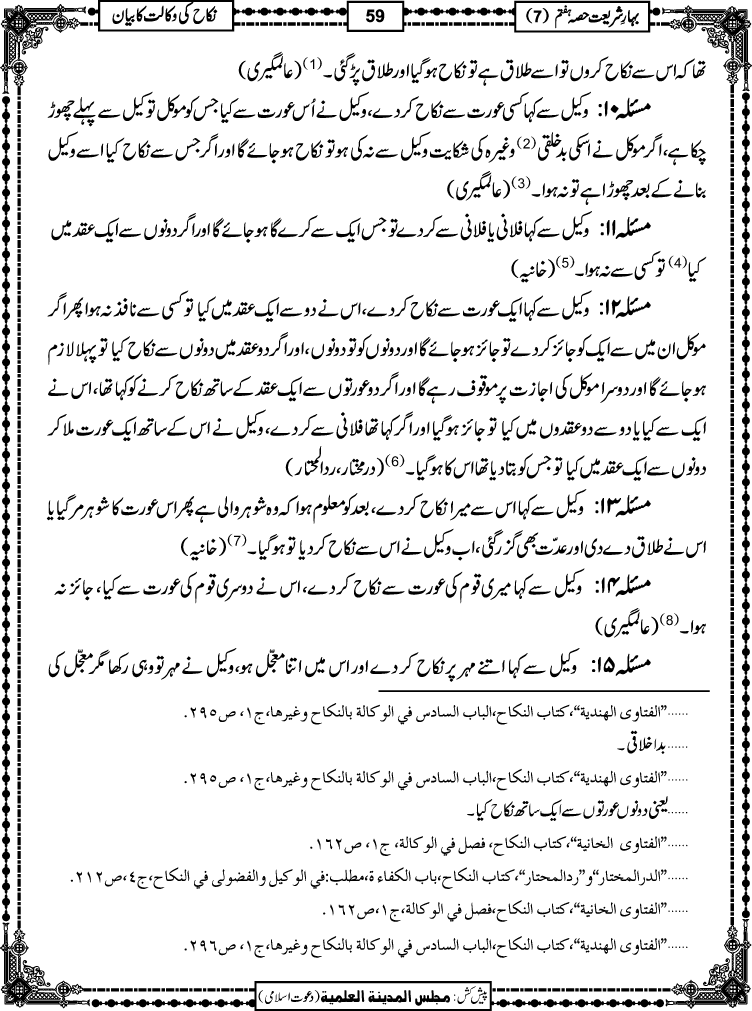 بہارِ شریعت حصہ ہفتم (7)
59
نکاح کی وکالت کا بیان
تھا کہ اس سے نکاح کروں تو اسے طلاق ہے تو نکاح ہوگیا اور طلاق پڑ گئی۔(1) (عالمگیری)
مسئلہ ۱۰: وکیل سے کہا کسی عورت سے نکاح کر دے، وکیل نے اُس عورت سے کیا جس کو موکل توکیل سے پہلے چھوڑ
چکا ہے، اگر موکل نے اسکی بدخلقی(2) وغیرہ کی شکایت وکیل سے نہ کی ہو تو نکاح ہو جائے گا اور اگر جس سے نکاح کیا اسے وکیل
بنانے کے بعد چھوڑا ہے تو نہ ہوا۔(3) (عالمگیری)
مسئلہ ۱۱: وکیل سے کہا فلانی یا فلانی سے کر دے تو جس ایک سے کرے گا ہو جائے گا اور اگر دونوں سے ایک عقد میں
کیا(4) تو کسی سے نہ ہوا۔(5) (خانیہ)
مسئلہ ۱۲: وکیل سے کہا ایک عورت سے نکاح کر دے، اس نے دو سے ایک عقد میں کیا تو کسی سے نافذ نہ ہوا پھر اگر
موکل ان میں سے ایک کو جائز کر دے تو جائز ہو جائے گا اور دونوں کو تو دونوں، اور اگر دو عقد میں دونوں سے نکاح کیا تو پہلا لازم
ہو جائے گا اور دوسرا موکل کی اجازت پر موقوف رہے گا اور اگر دو عورتوں سے ایک عقد کے ساتھ نکاح کرنے کو کہا تھا، اس نے
ایک سے کیا یا دو سے دو عقدوں میں کیا تو جائز ہو گیا اور اگر کہا تھا فلانی سے کر دے، وکیل نے اس کے ساتھ ایک عورت ملا کر
دونوں سے ایک عقد میں کیا تو جس کو بتا دیا تھا اس کا ہو گیا۔(6) (درمختار، ردالمحتار)
مسئلہ ۱۳: وکیل سے کہا اس سے میرا نکاح کر دے، بعد کو معلوم ہوا کہ وہ شوہر والی ہے پھر اس عورت کا شوہر مر گیا یا
اس نے طلاق دے دی اور عدّت بھی گزر گئی، اب وکیل نے اس سے نکاح کر دیا تو ہو گیا۔(7) (خانیہ)
مسئلہ ۱۴: وکیل سے کہا میری قوم کی عورت سے نکاح کر دے، اس نے دوسری قوم کی عورت سے کیا، جائز نہ
ہوا۔(8) (عالمگیری)
مسئلہ ۱۵: وکیل سے کہا اتنے مہر پر نکاح کر دے اور اس میں اتنا معجّل ہو، وکیل نے مہر تو وہی رکھا مگر معجّل کی
......"الفتاوی الھندیة"، کتاب النکاح، الباب السادس في الوکالة بالنکاح وغیرھا، ج۱، ص۲۹۵.
......بد اخلاقی۔
......"الفتاوی الھندیة"، کتاب النکاح، الباب السادس في الوکالة بالنکاح وغیرھا، ج۱، ص۲۹۵.
......یعنی دونوں عورتوں سے ایک ساتھ نکاح کیا۔
......"الفتاوی الخانیة"، کتاب النکاح، فصل في الوکالة، ج۱، ص۱۶۲.
......"الدرالمختار" و"ردالمحتار"، کتاب النکاح، باب الکفاءة، مطلب: في الوکیل والفضولی في النکاح، ج٤، ص۲۱۲.
......"الفتاوی الخانیة"، کتاب النکاح، فصل في الوکالة، ج۱، ص۱۶۲.
......"الفتاوی الھندیة"، کتاب النکاح، الباب السادس في الوکالة بالنکاح وغیرھا، ج۱، ص۲۹۶.
پیش کش: مجلس المدینة العلمیة (دعوت اسلامی)